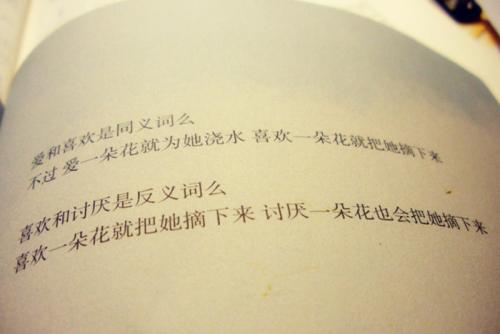 爱和喜欢是同义词么
不过 爱一朵花就为她浇水 喜欢一朵花就把她摘下来
喜欢和讨厌是反义词么
喜欢一朵花就把她摘下来 讨厌一朵花也会把她摘下来